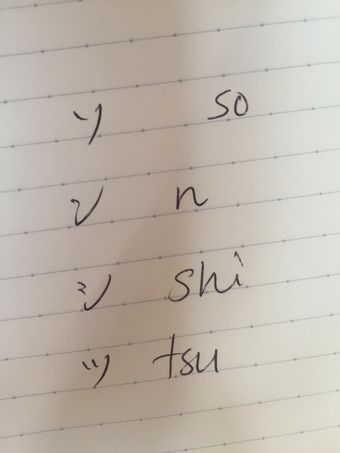 ソ so
ン n
シ shi
ツ tsu